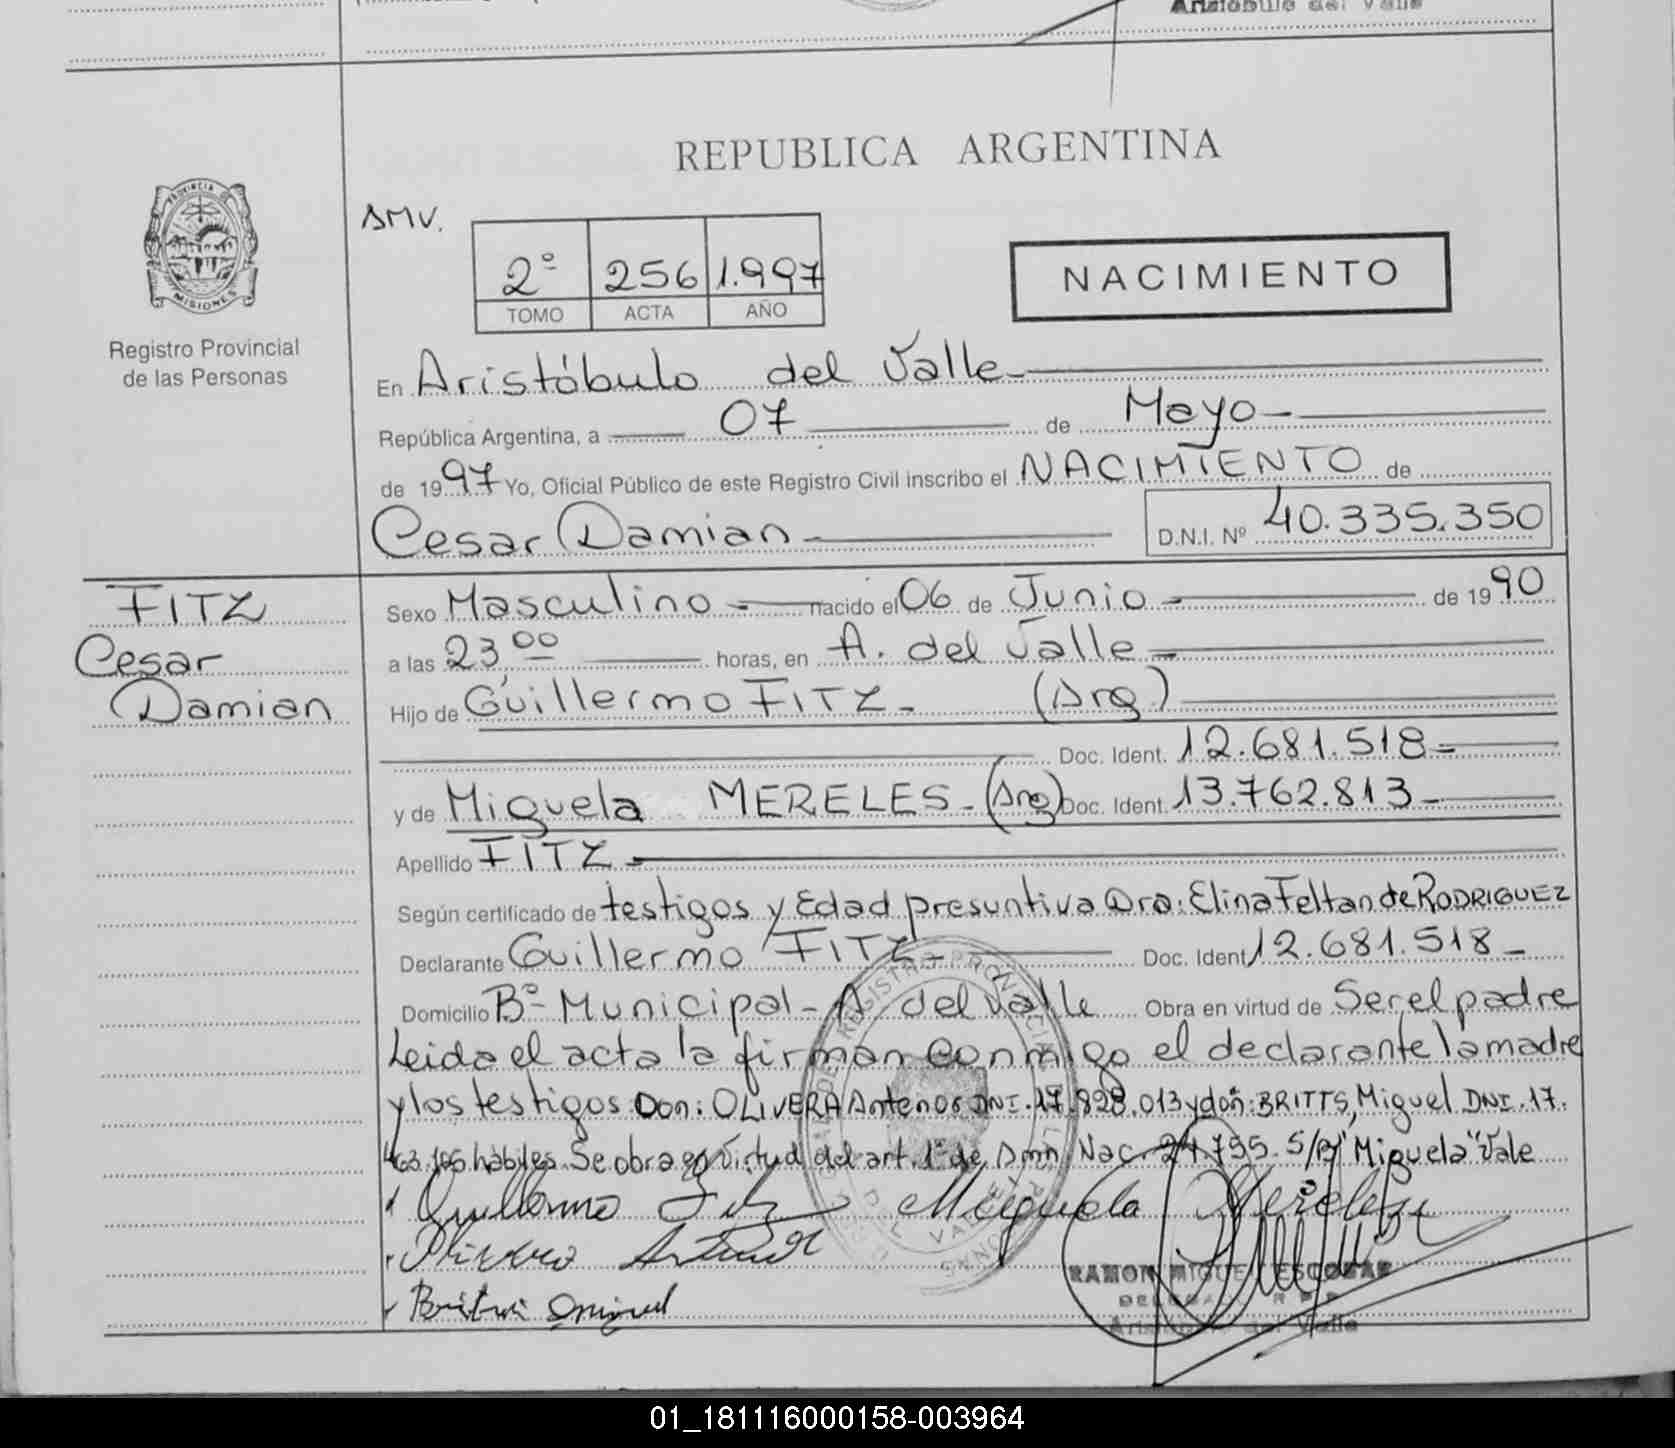 Aristóbulo del Valle
REPUBLICA ARGENTINA
PROVINCIA DE
MISIONES
Registro Provincial
de las Personas
AMV.
2º 256 1.997
TOMO ACTA AÑO
NACIMIENTO
En Aristóbulo del Valle
República Argentina, a 07 de Mayo
de 1997 Yo, Oficial Público de este Registro Civil inscribo el NACIMIENTO de
Cesar Damian D.N.I. Nº 40.335.350
FITZ
Cesar
Damian
Sexo Masculino nacido el 06 de Junio de 1990
a las 23 00 horas, en A. del Valle
Hijo de Guillermo FITZ (Arg)
Doc. Ident. 12.681.518
y de Miguela MERELES (Arg) Doc. Ident. 13.762.813
Apellido FITZ
Según certificado de testigos y Edad presuntiva Dra: Elina Feltan de RODRIGUEZ
Declarante Guillermo FITZ Doc. Ident 12.681.518
Domicilio Bº Municipal - A del Valle Obra en virtud de Ser el padre
Leida el acta la firman conmigo el declarante la madre
y los testigos Don: OLIVERA Antenor DNI. 17.828.013 y don: BRITTS, Miguel DNI. 17.
463.105 habiles. Se obra en virtud del art. 1º de Amn. Nac. 24.755. S/R "Miguela" Vale
Guillermo Fitz Miguela Mereles
Olivera Antenor
RAMON MIGUEL ESCOBAR
Aristóbulo del Valle
01_181116000158-003964